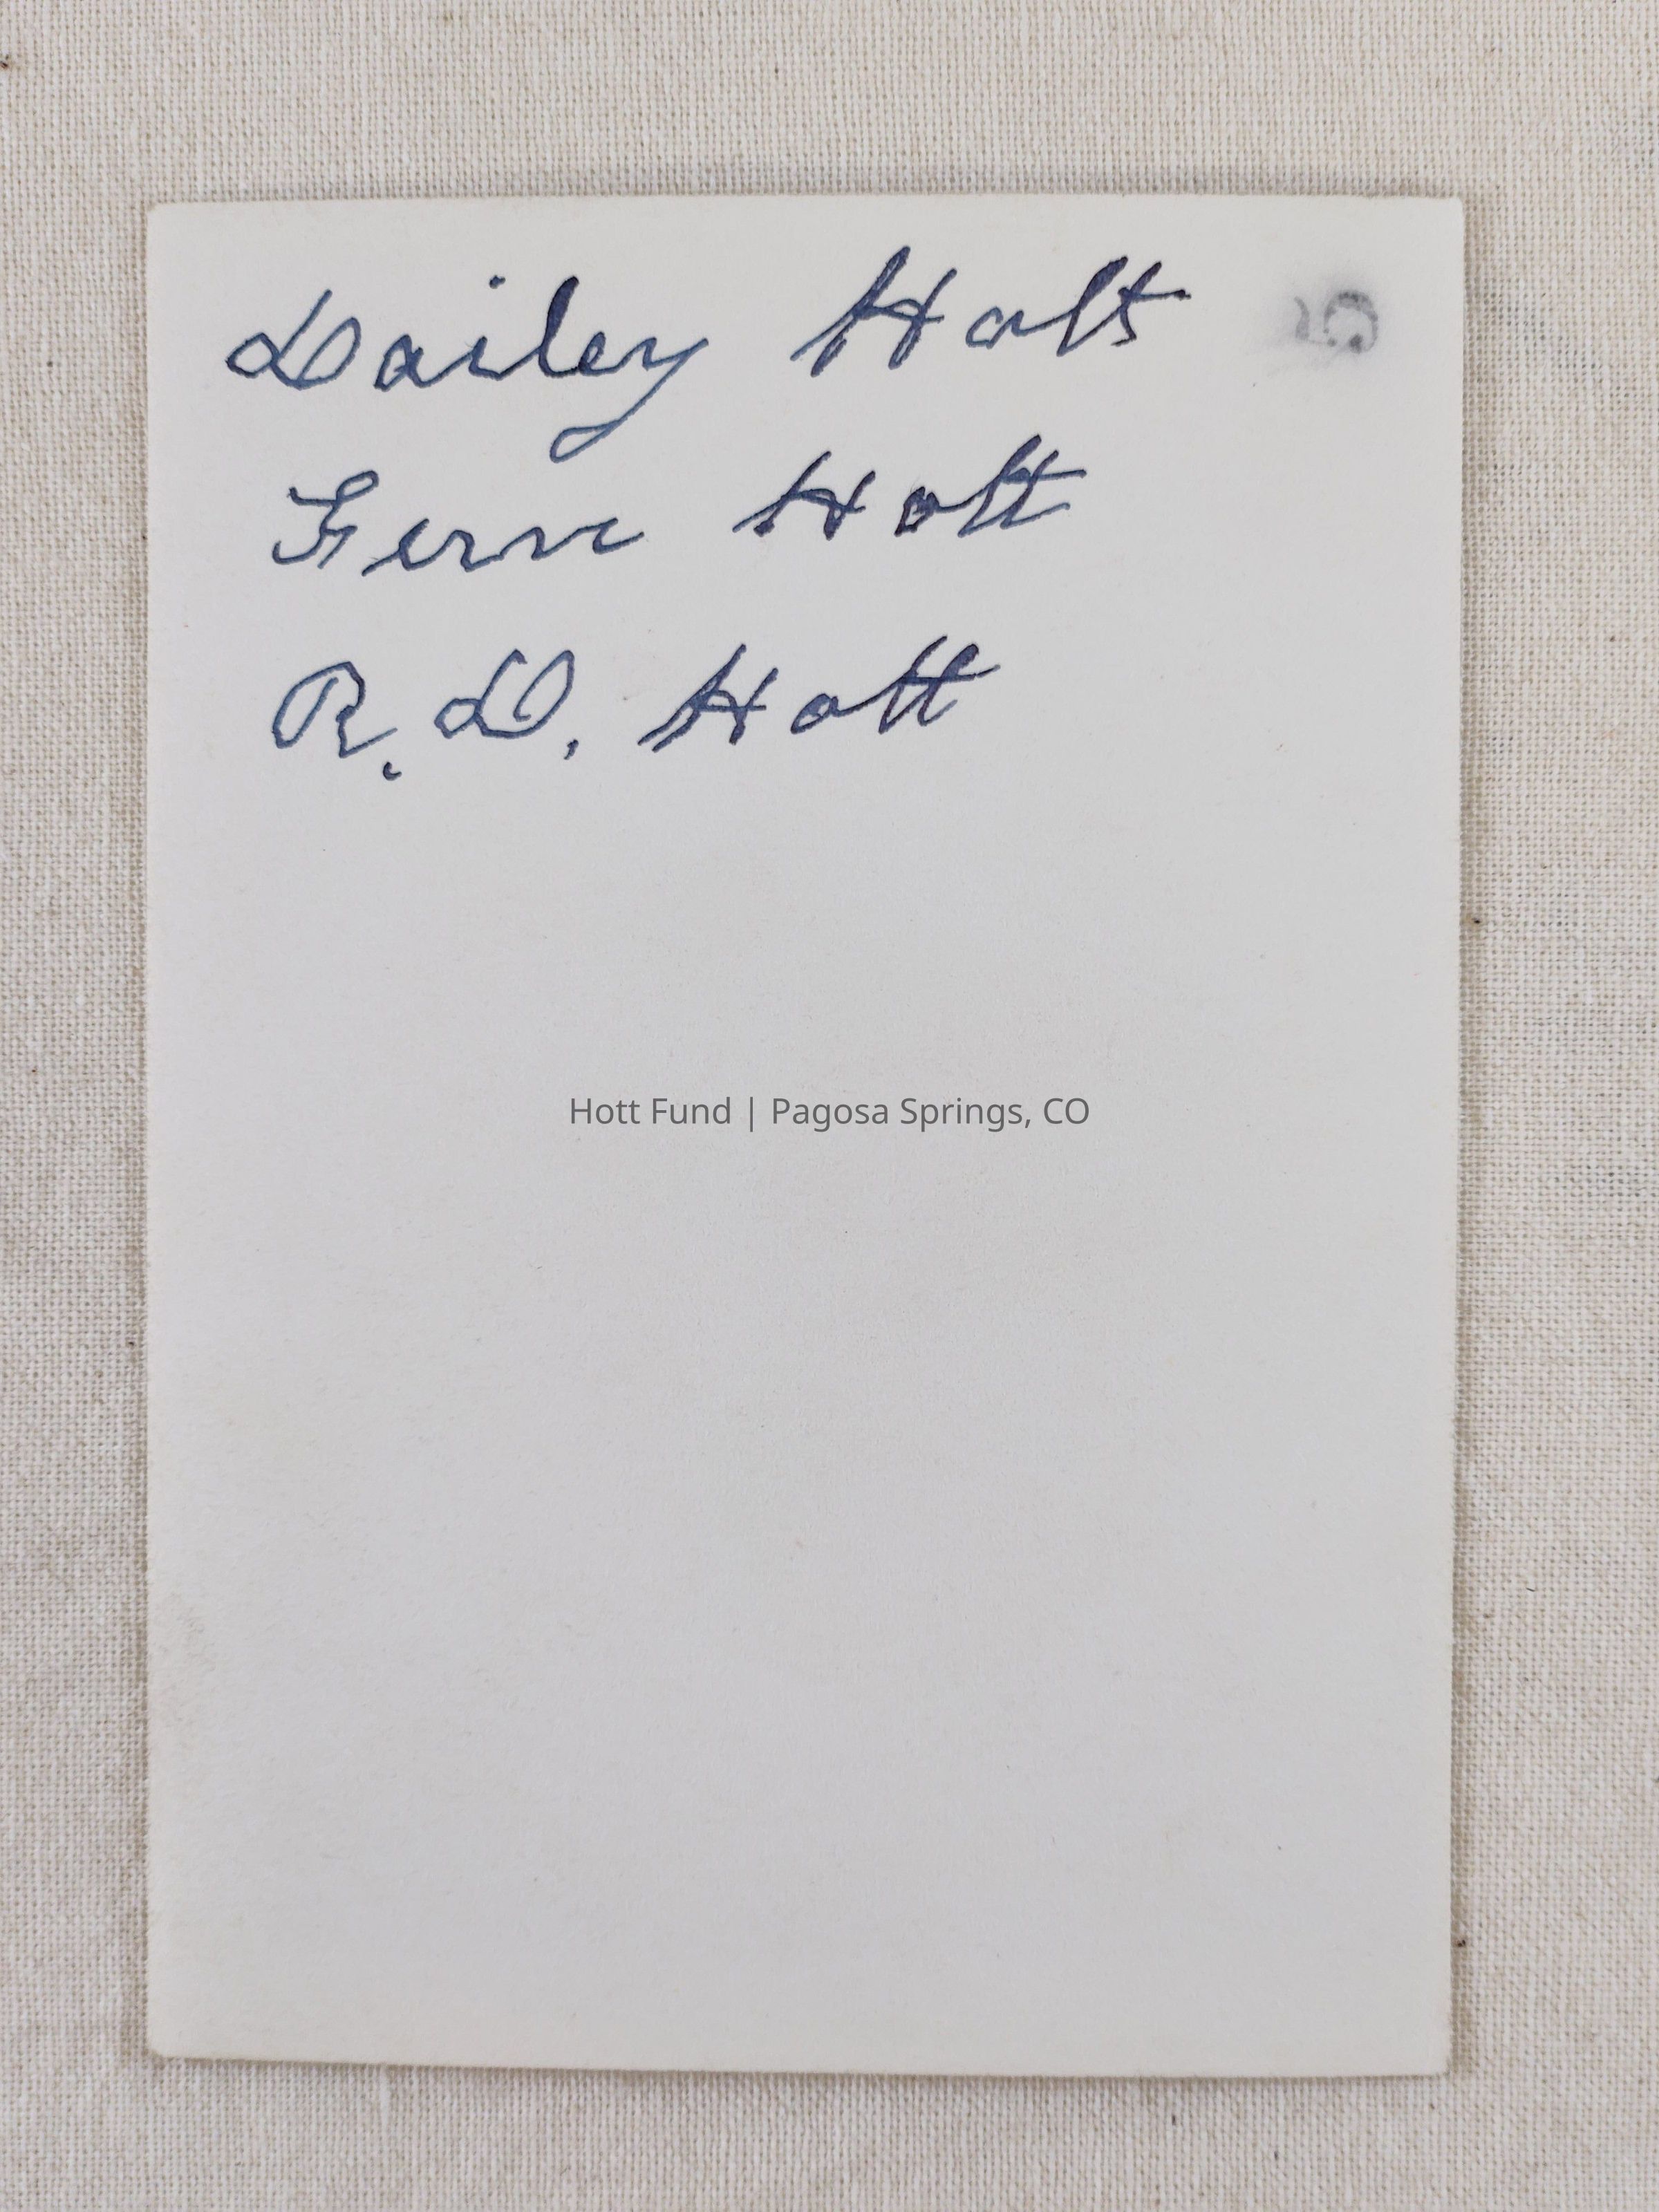 Dailey Hott
Fern Hott
R. D. Hott
Hott Fund | Pagosa Springs, CO